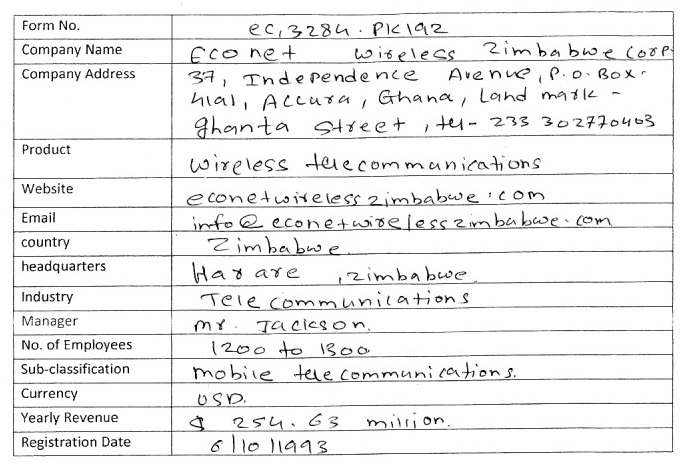 Form No. ec,3284.PK192
Company Name Econet wireless Zimbabwe Corp.
Company Address 37, Independence Avenue, P.O.Box.
4191, Accura, Ghana, Land mark -
ghanta street, tel- 233 302770403
Product wireless telecommunications
Website econetwirelesszimbabwe.com
Email info@econetwirelesszimbabwe.com
country Zimbabwe
headquarters Harare, zimbabwe
Industry Telecommunications
Manager mr. Jackson.
No. of Employees 1200 to 1300
Sub-classification mobile telecommunications.
Currency USD.
Yearly Revenue $ 254.63 million.
Registration Date 6/10/1993